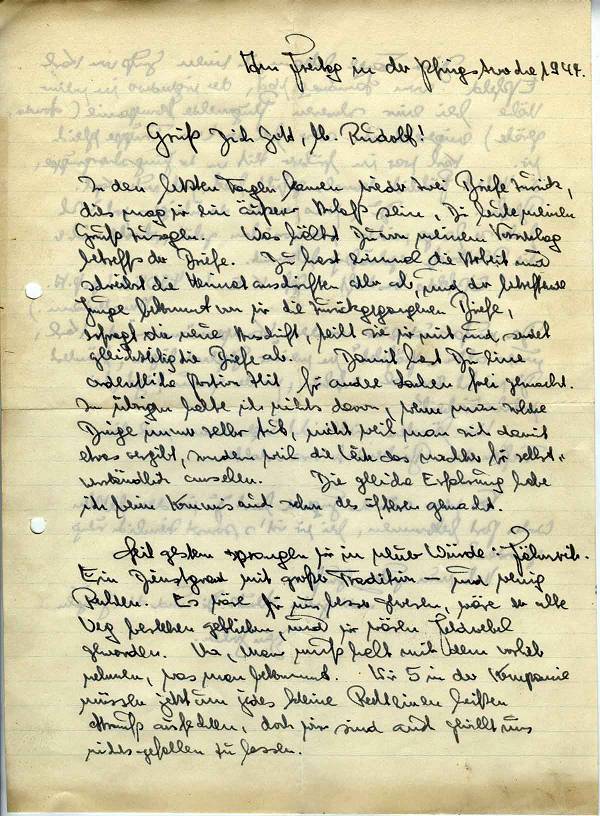 Am Freitag in der Pfingstwoche 1944.
Grüß Dich Gott, lb. Rudolf!
In den letzten Tagen kamen wieder zwei Briefe zurück,
dies mag mir ein äußerer Anlaß sein, Dir heute meinen
Gruß zu sagen. Was hältst Du von meinem Vorschlag
betreffs der Briefe. Du hast einmal die Arbeit und
schreibst die Heimatanschriften aller ab, und der betreffende
Junge bekommt von mir die zurückgegangenen Briefe,
erfragt die neue Anschrift, teilt sie mir mit und sendet
gleichzeitig die Briefe ab. Damit hast Du eine
ordentliche Portion Zeit für andre Sachen frei gemacht.
Im übrigen halte ich nichts davon, wenn man solche
Dinge immer selber tut, nicht weil man sich damit
etwas vergibt, sondern weil die Leute das nachher für selbst=
verständlich ansehen. Die gleiche Erfahrung habe
ich beim Kommis auch schon des öfteren gemacht.
Seit gestern prangen wir in neuer Würde: Fähnrich.
Ein Dienstgrad mit großer Tradition – und wenig
Rechten. Es wäre für uns besser gewesen, wäre der alte
Weg bestehen geblieben, und wir wären Feldwebel
geworden. Na, man muß halt mit dem vorlieb
nehmen, was man bekommt. Wir 5 in der Kompanie
müssen jetzt um jedes kleine Rechtlein einen heißen
Strauß ausfechten, doch wir sind auch gewillt uns
nichts gefallen zu lassen.